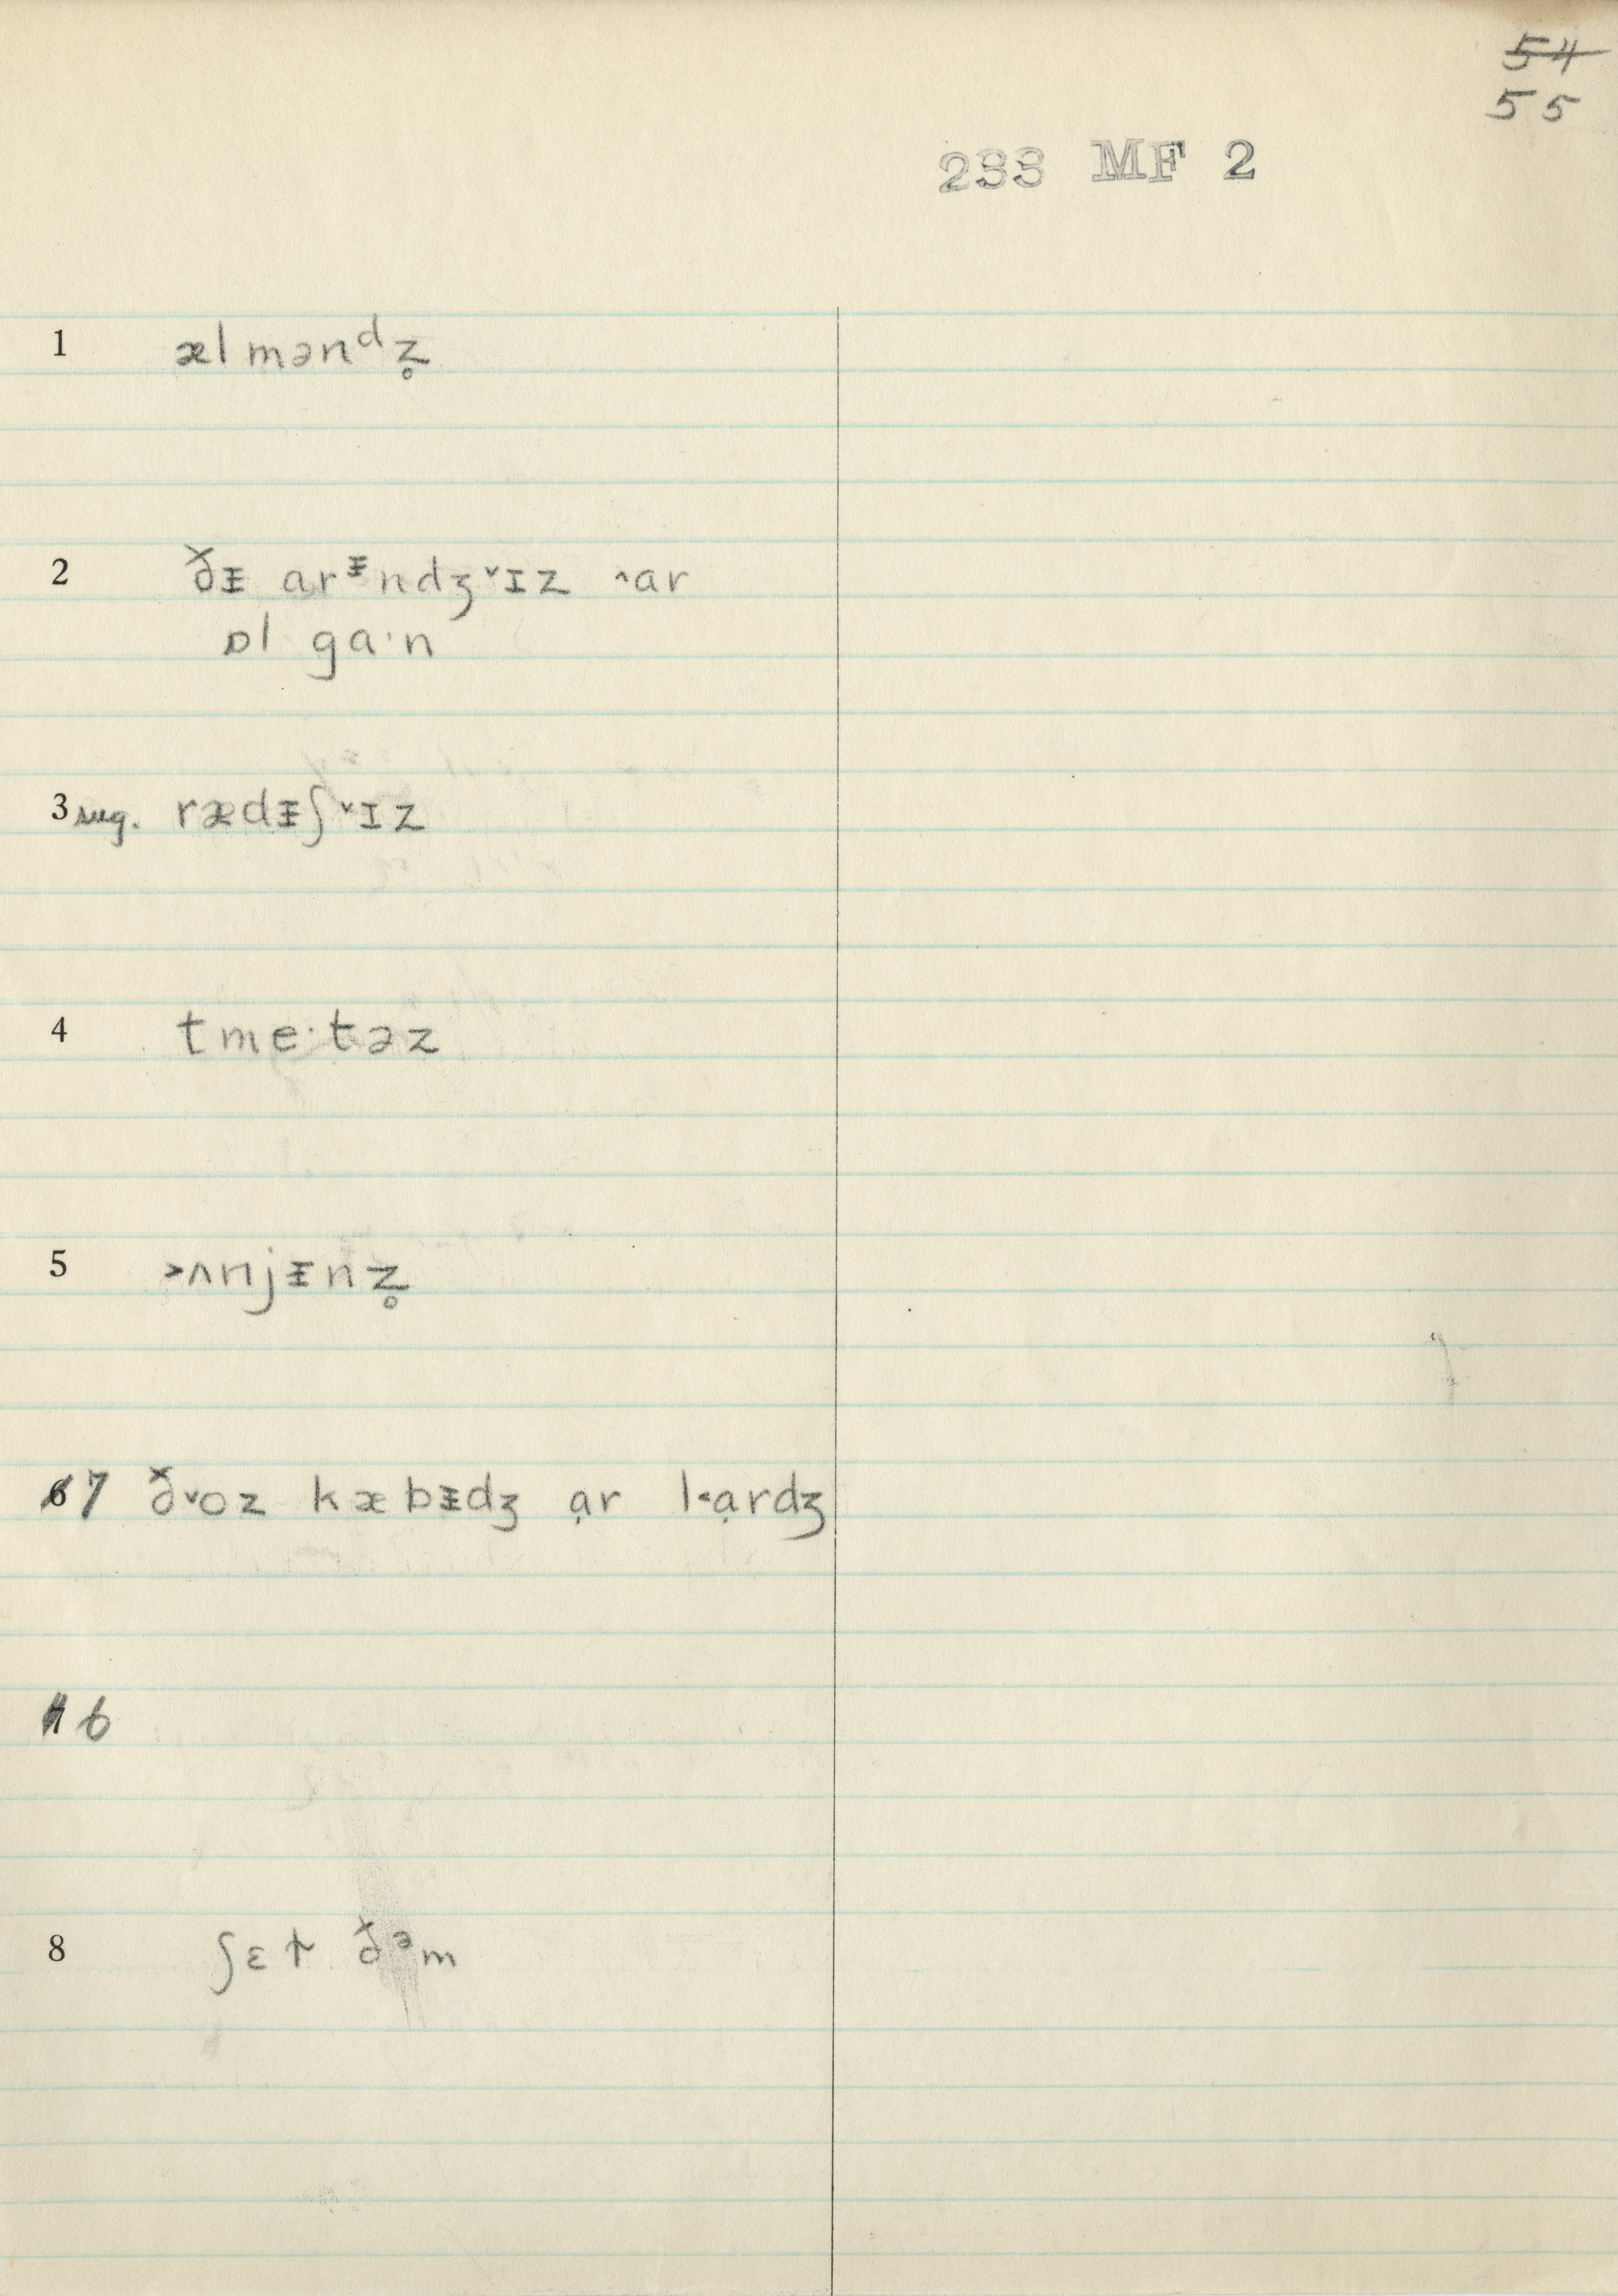 ~~54~~
55
233 MF 2
1 ælmənᵈz̥
2 ðᵻ arᵻndʒ˅ɪz ˄ar
ɒl ga·n
3 sug. rædᵻʃ˅ɪz
4 tme·təz
5 ˃ʌnjᵻnz̥
~~6~~ 7 ð˅oz kæbᵻdʒ ạr l˂ạrdʒ
~~7~~ 6
8 ʃɛt ðᵊm